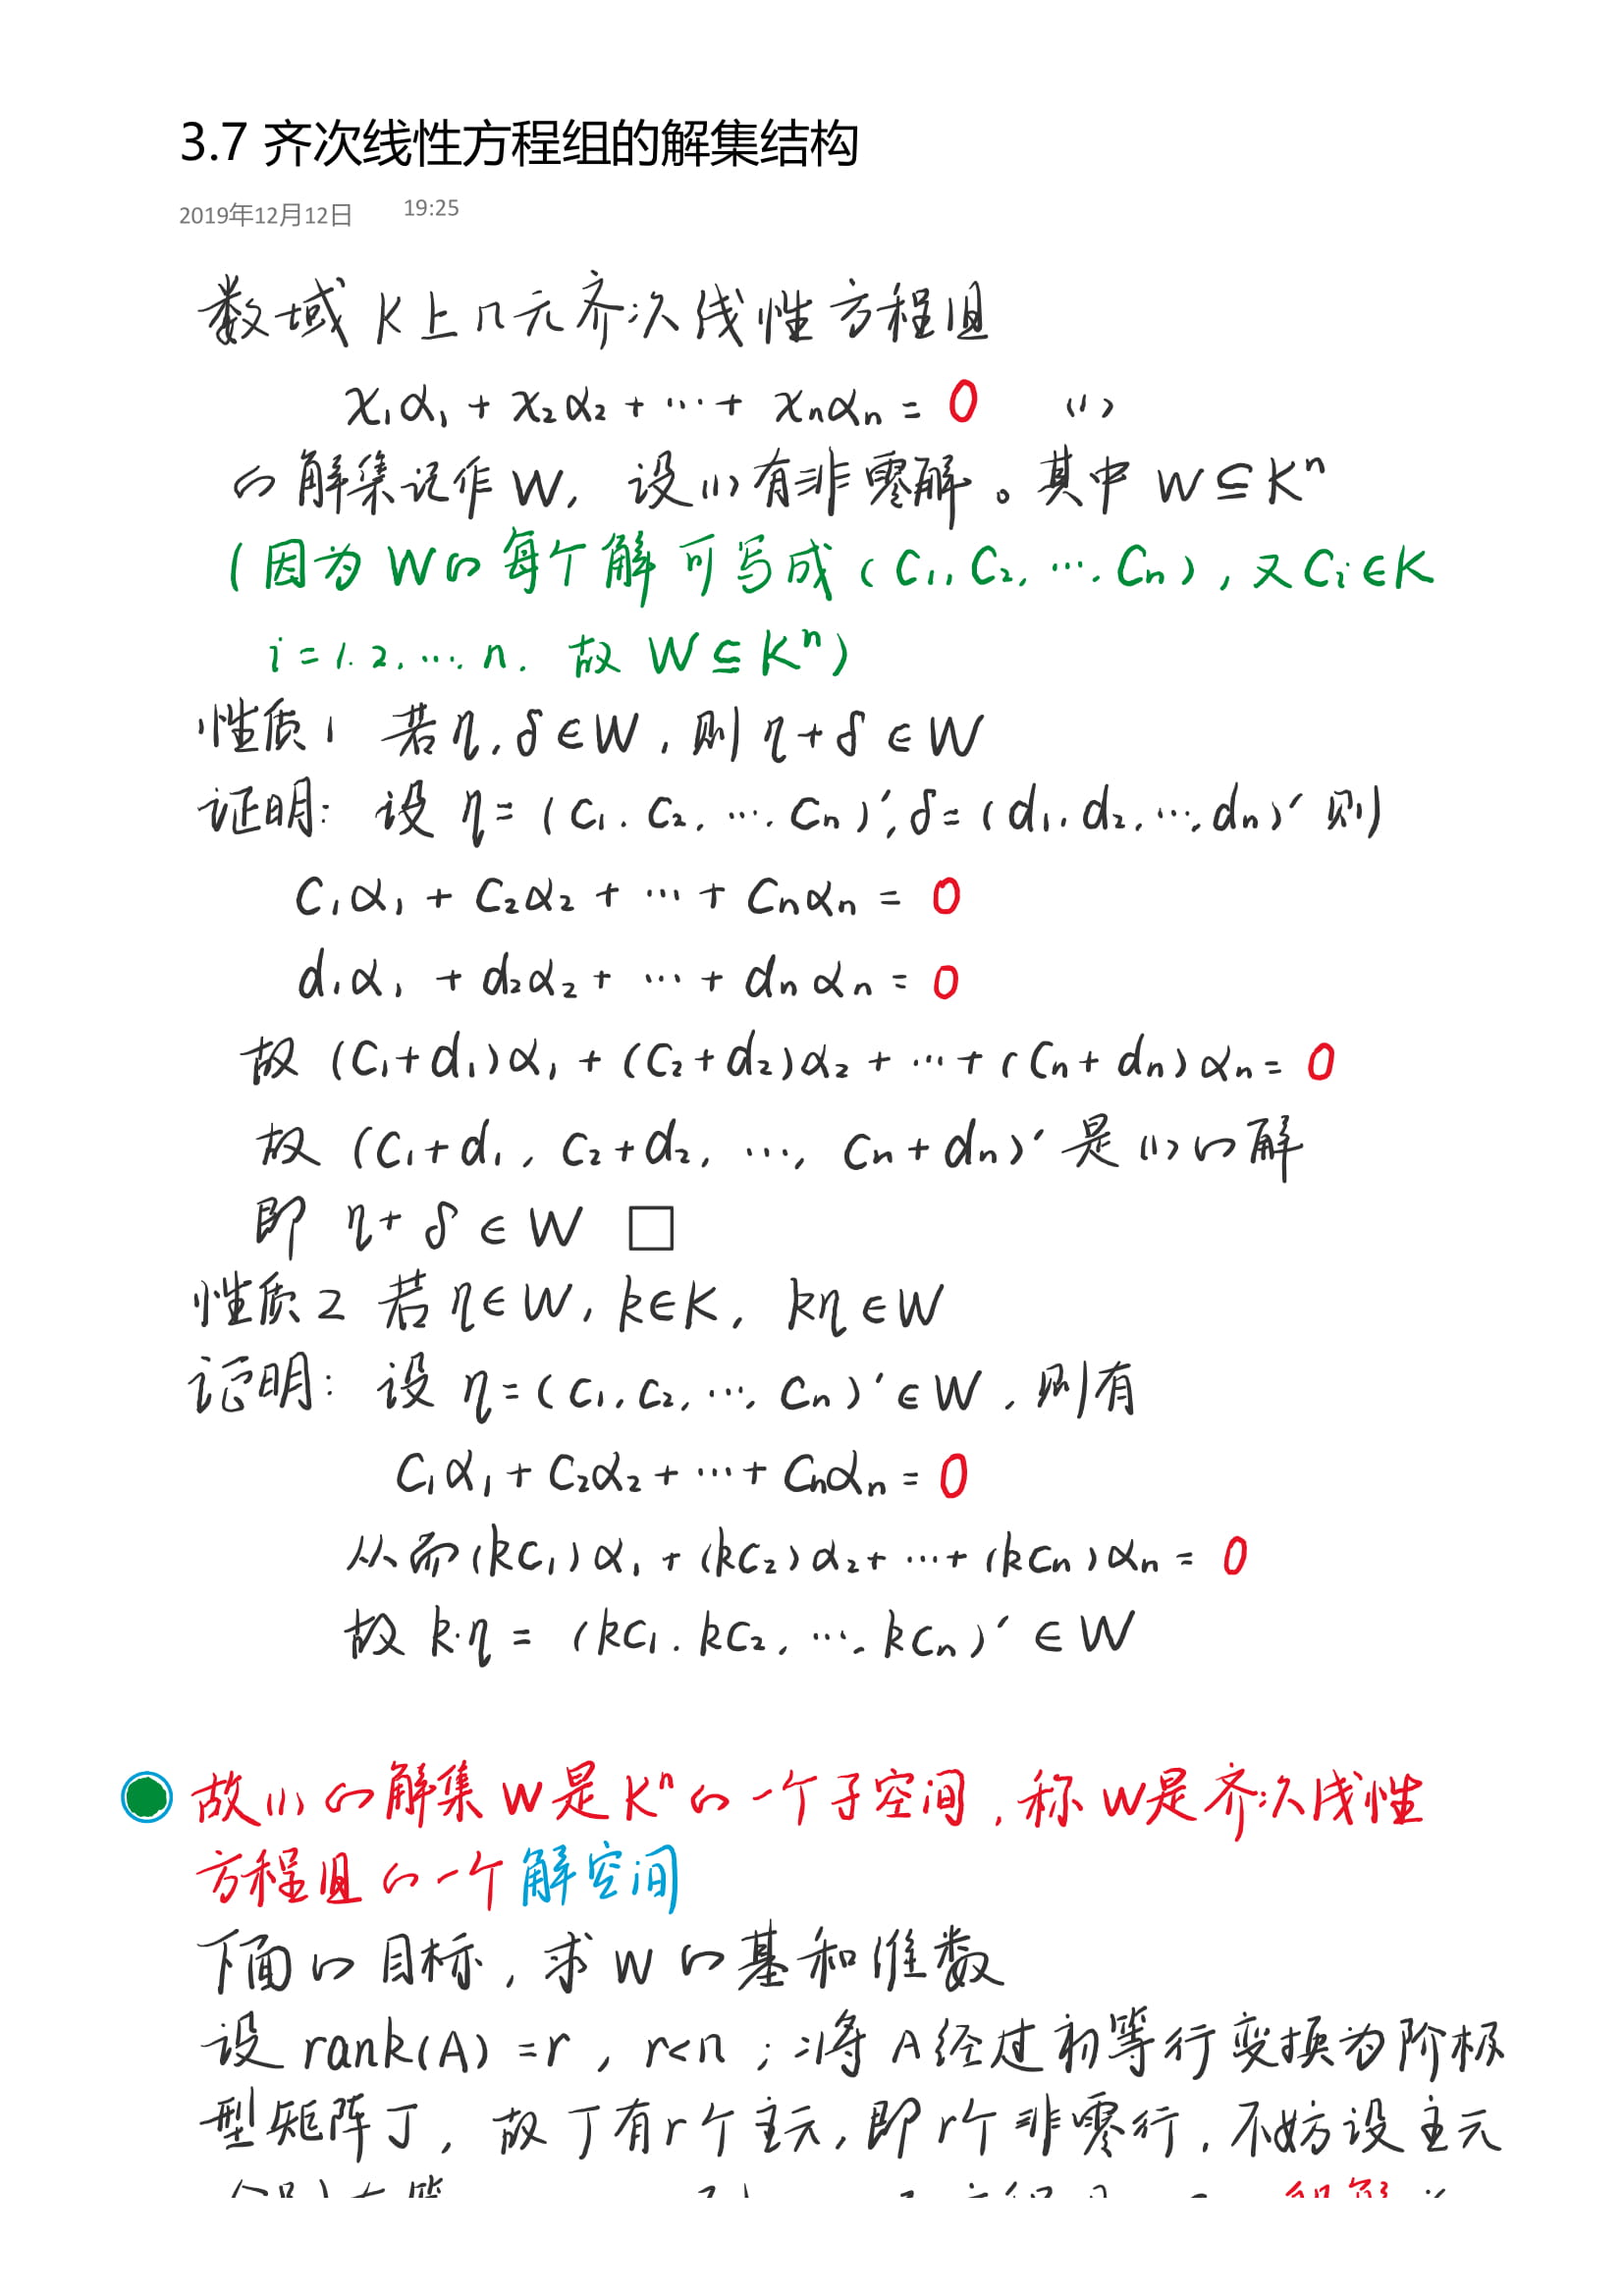 3.7 齐次线性方程组的解集结构
2019年12月12日 19:25
数域 K 上 n 元齐次线性方程组
x₁α₁ + x₂α₂ + ⋯ + xₙαₙ = 0 (1)
的解集记作 W, 设(1)有非零解。其中 W ⊆ Kⁿ
(因为 W的每个解可写成 (C₁, C₂, ⋯, Cₙ), 又 Cᵢ ∈ K
i = 1. 2, ⋯, n. 故 W ⊆ Kⁿ)
性质1 若 η, δ ∈ W, 则 η + δ ∈ W
证明: 设 η = (C₁, C₂, ⋯, Cₙ)′, δ = (d₁, d₂, ⋯, dₙ)′ 则
C₁α₁ + C₂α₂ + ⋯ + Cₙαₙ = 0
d₁α₁ + d₂α₂ + ⋯ + dₙαₙ = 0
故 (C₁+d₁)α₁ + (C₂+d₂)α₂ + ⋯ + (Cₙ+dₙ)αₙ = 0
故 (C₁+d₁, C₂+d₂, ⋯, Cₙ+dₙ)′ 是(1)的解
即 η + δ ∈ W □
性质2 若 η ∈ W, k ∈ K, kη ∈ W
证明: 设 η = (C₁, C₂, ⋯, Cₙ)′ ∈ W, 则有
C₁α₁ + C₂α₂ + ⋯ + Cₙαₙ = 0
从而 (kC₁)α₁ + (kC₂)α₂ + ⋯ + (kCₙ)αₙ = 0
故 k·η = (kC₁, kC₂, ⋯, kCₙ)′ ∈ W
故(1)的解集 W是 Kⁿ的一个子空间, 称 W是齐次线性
方程组的一个解空间
下面的目标, 求 W的基和维数
设 rank(A) = r, r<n; 将 A经过初等行变换为阶梯
型矩阵J, 故J有r个主元, 即r个非零行, 不妨设主元